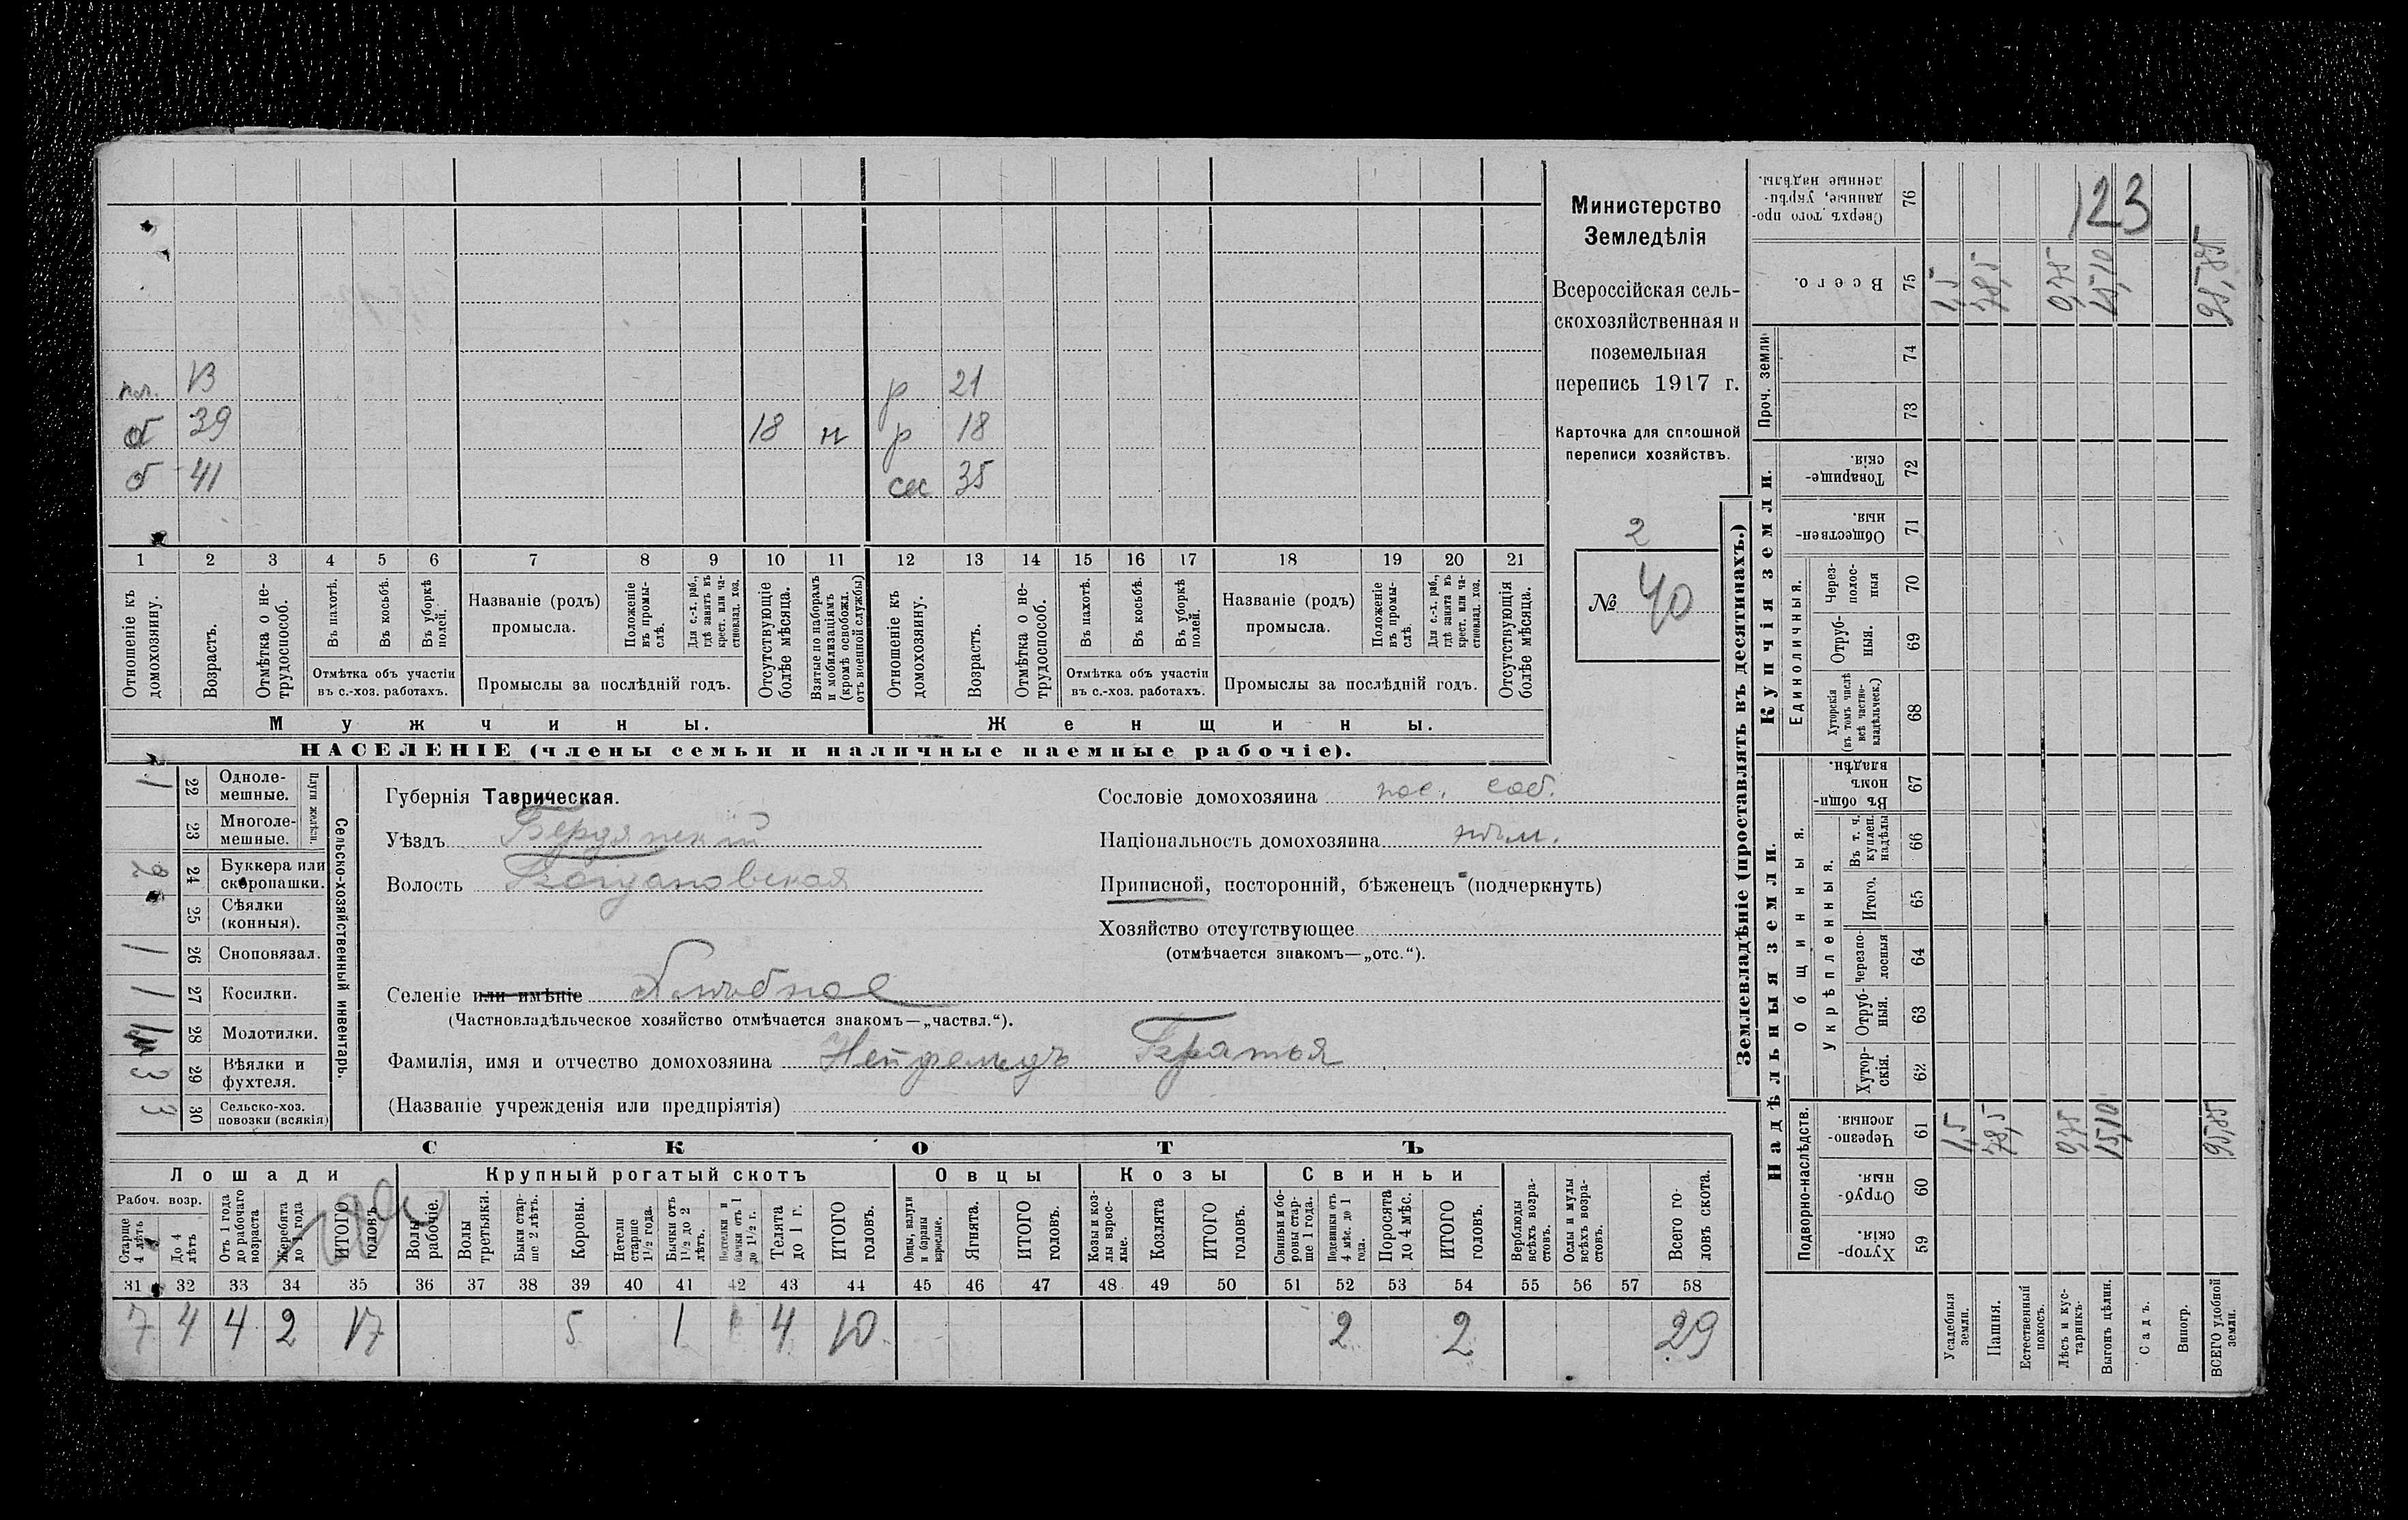 Министерство
Земледѣлія
Всероссійская сель-
скохозяйственная и
поземельная
перепись 1917 г.
Карточка для сплошной
переписи хозяйствъ.
2
№ 40
39 18 н р 18
б 41 35
р 21
1 2 3 4 5 6 7 8 9 10 11 12 13 14 15 16 17 18 19 20 21
Отношеніе къ домохозяину.
Возрастъ.
Отмѣтка о не-трудоспособ.
Въ пахотѣ.
Въ косьбѣ.
Въ уборкѣ полей.
Отмѣтка объ участіи въ с.-хоз. работахъ.
Названіе (родъ) промысла.
Положеніе въ промы-слѣ.
Для с.-х. раб., гдѣ занятъ въ крест. или ча-стновлад. хоз.
Промыслы за послѣдній годъ.
Отсутствующіе болѣе мѣсяца.
Взятые по наборамъ и мобилизаціямъ (кромѣ освобожд. отъ военной службы)
Отношеніе къ домохозяину.
Возрастъ.
Отмѣтка о не-трудоспособ.
Въ пахотѣ.
Въ косьбѣ.
Въ уборкѣ полей.
Отмѣтка объ участіи въ с.-хоз. работахъ.
Названіе (родъ) промысла.
Положеніе въ промы-слѣ.
Для с.-х. раб., гдѣ занята въ крест. или ча-стновлад. хоз.
Промыслы за послѣдній годъ.
Отсутствующія болѣе мѣсяца.
Мужчины.
Женщины.
НАСЕЛЕНІЕ (члены семьи и наличные наемные рабочіе).
Сельско-хозяйственный инвентарь.
Плуги желѣзн.
1 22 Одноле-мешные.
23 Многоле-мешные.
2 24 Буккера или скоропашки.
25 Сѣялки (конныя).
1 26 Сноповязал.
1 27 Косилки.
28 Молотилки.
3 29 Вѣялки и фухтеля.
3 30 Сельско-хоз. повозки (всякія)
Губернія Таврическая.
Уѣздъ Бердянскій
Волость Богдановская
Селеніе или имѣніе
(Частновладѣльческое хозяйство отмѣчается знакомъ—„частвл.“).
Фамилія, имя и отчество домохозяина Нейфельдъ Братья
(Названіе учрежденія или предпріятія)
Сословіе домохозяина пос. соб.
Національность домохозяина нѣм.
Приписной, посторонній, бѣженецъ (подчеркнуть)
Хозяйство отсутствующее
(отмѣчается знакомъ—„отс.“).
СКОТЪ
Лошади
Крупный рогатый скотъ
Овцы
Козы
Свиньи
Рабоч. возр.
Старше 4 лѣтъ
До 4 лѣтъ
Отъ 1 года до рабочаго возраста
Жеребята до 1 года
ИТОГО головъ.
Волы рабочіе.
Волы третьяки.
Быки стар-ше 2 лѣтъ.
Коровы.
Нетели старше 1½ года.
Бычки отъ 1½ до 2 лѣтъ.
бычки отъ 1 до 1½ г.
Телята до 1 г.
ИТОГО головъ.
Овцы, валухи и бараны взрослые.
Ягнята.
ИТОГО головъ.
Козы и коз-лы взрос-лые.
Козлята
ИТОГО головъ.
Свиньи и бо-ровы стар-ше 1 года.
Подсвинки отъ 4 мѣс. до 1 года.
Поросята до 4 мѣс.
ИТОГО головъ.
Верблюды всѣхъ возра-стовъ.
Ослы и мулы всѣхъ возра-стовъ.
Всего го-ловъ скота.
31 32 33 34 35 36 37 38 39 40 41 42 43 44 45 46 47 48 49 50 51 52 53 54 55 56 57 58
7 4 4 2 17 5 1 4 10 2 2 29
Землевладѣніе (проставлять въ десятинахъ.)
Надѣльныя земли.
Купчія земли.
Проч. земли
Подворно-наслѣдств.
Общинныя.
Укрѣпленныя.
Единоличныя.
Хутор-скія. 59
Отруб-ныя. 60
Черезпо-лосныя. 61
Хутор-скія. 62
Отруб-ныя. 63
Черезпо-лосныя 64
Итого. 65
Въ т. ч. куплен. надѣлы 66
Въ общи-номъ владѣн. 67
Хуторскія (въ томъ числѣ всѣ частно-владѣльческ.) 68
Отруб-ныя. 69
Через-полос-ныя 70
Обществен-ныя. 71
Товарище-скія. 72
73
74
Всего. 75
Сверхъ того про-данные, укрѣп-ленные надѣлы. 76
Усадебныя земли. 1,5 1,5
Пашня. 78,5 78,5
Естественный покосъ.
Лѣсъ и кус-тарникъ. 0,75 0,75
Выгонъ цѣлин. 15,10 15,10
Садъ.
Виногр.
ВСЕГО удобной земли. 95,85 95,85
123